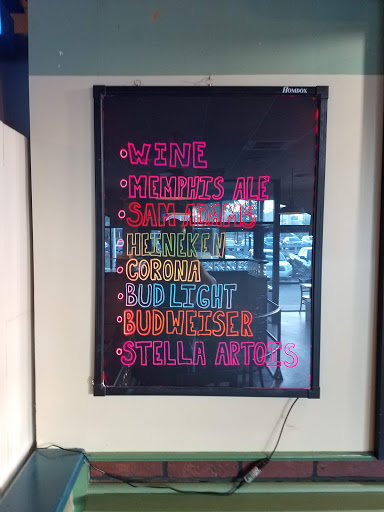 HOMDOX
•WINE
•MEMPHIS ALE
•SAM ADAMS
•HEINEKEN
•CORONA
•BUD LIGHT
•BUDWEISER
•STELLA ARTOIS